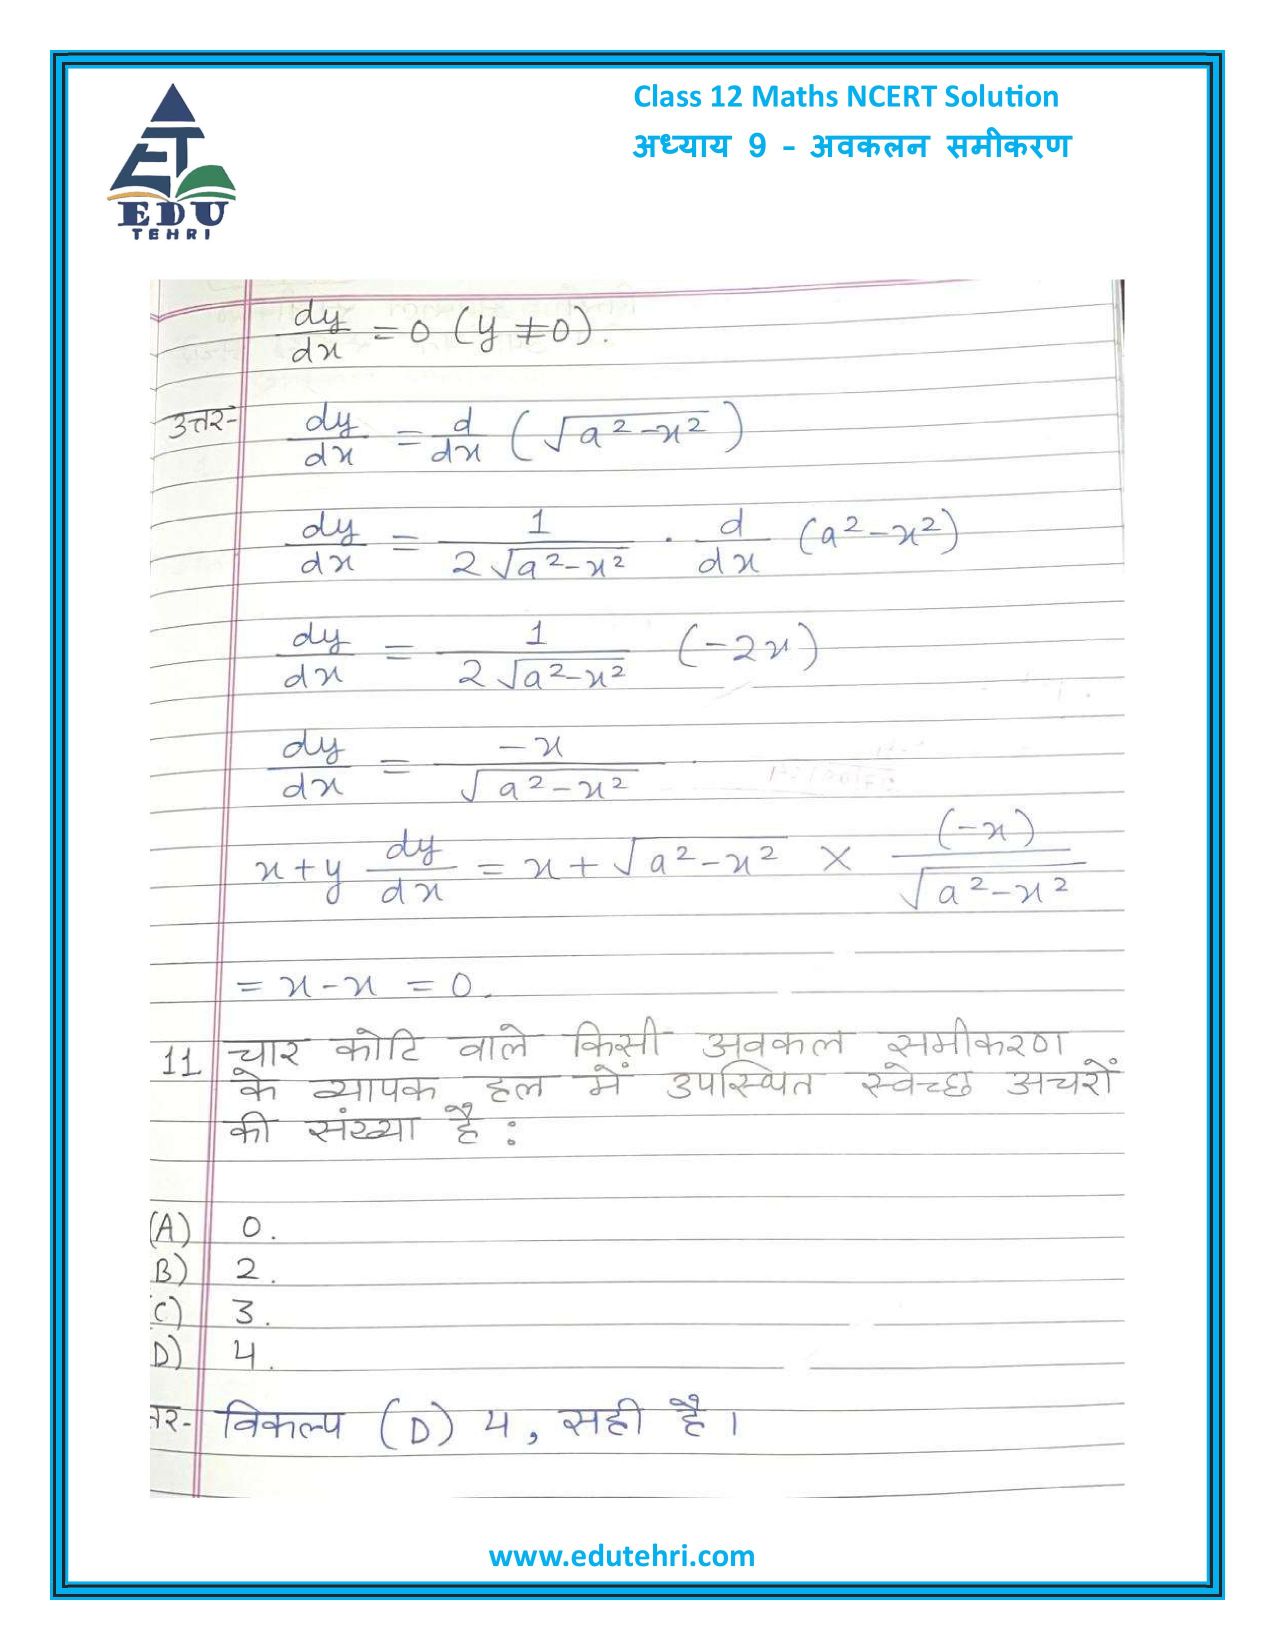 Class 12 Maths NCERT Solution
अध्याय 9 - अवकलन समीकरण
EDU
TEHRI
dy/dx = 0 (y ≠ 0).
उत्तर:- dy/dx = d/dx (√a²-x²)
dy/dx = 1/2√a²-x² · d/dx (a²-x²)
dy/dx = 1/2√a²-x² (-2x)
dy/dx = -x/√a²-x² .
x+y dy/dx = x + √a²-x² × (-x)/√a²-x²
= x-x = 0.
11 चार कोटि वाले किसी अवकल समीकरण
के व्यापक हल में उपस्थित स्वेच्छ अचरों
की संख्या है :
(A) 0.
B) 2.
C) 3.
D) 4.
तर:- विकल्प (D) 4, सही है।
www.edutehri.com